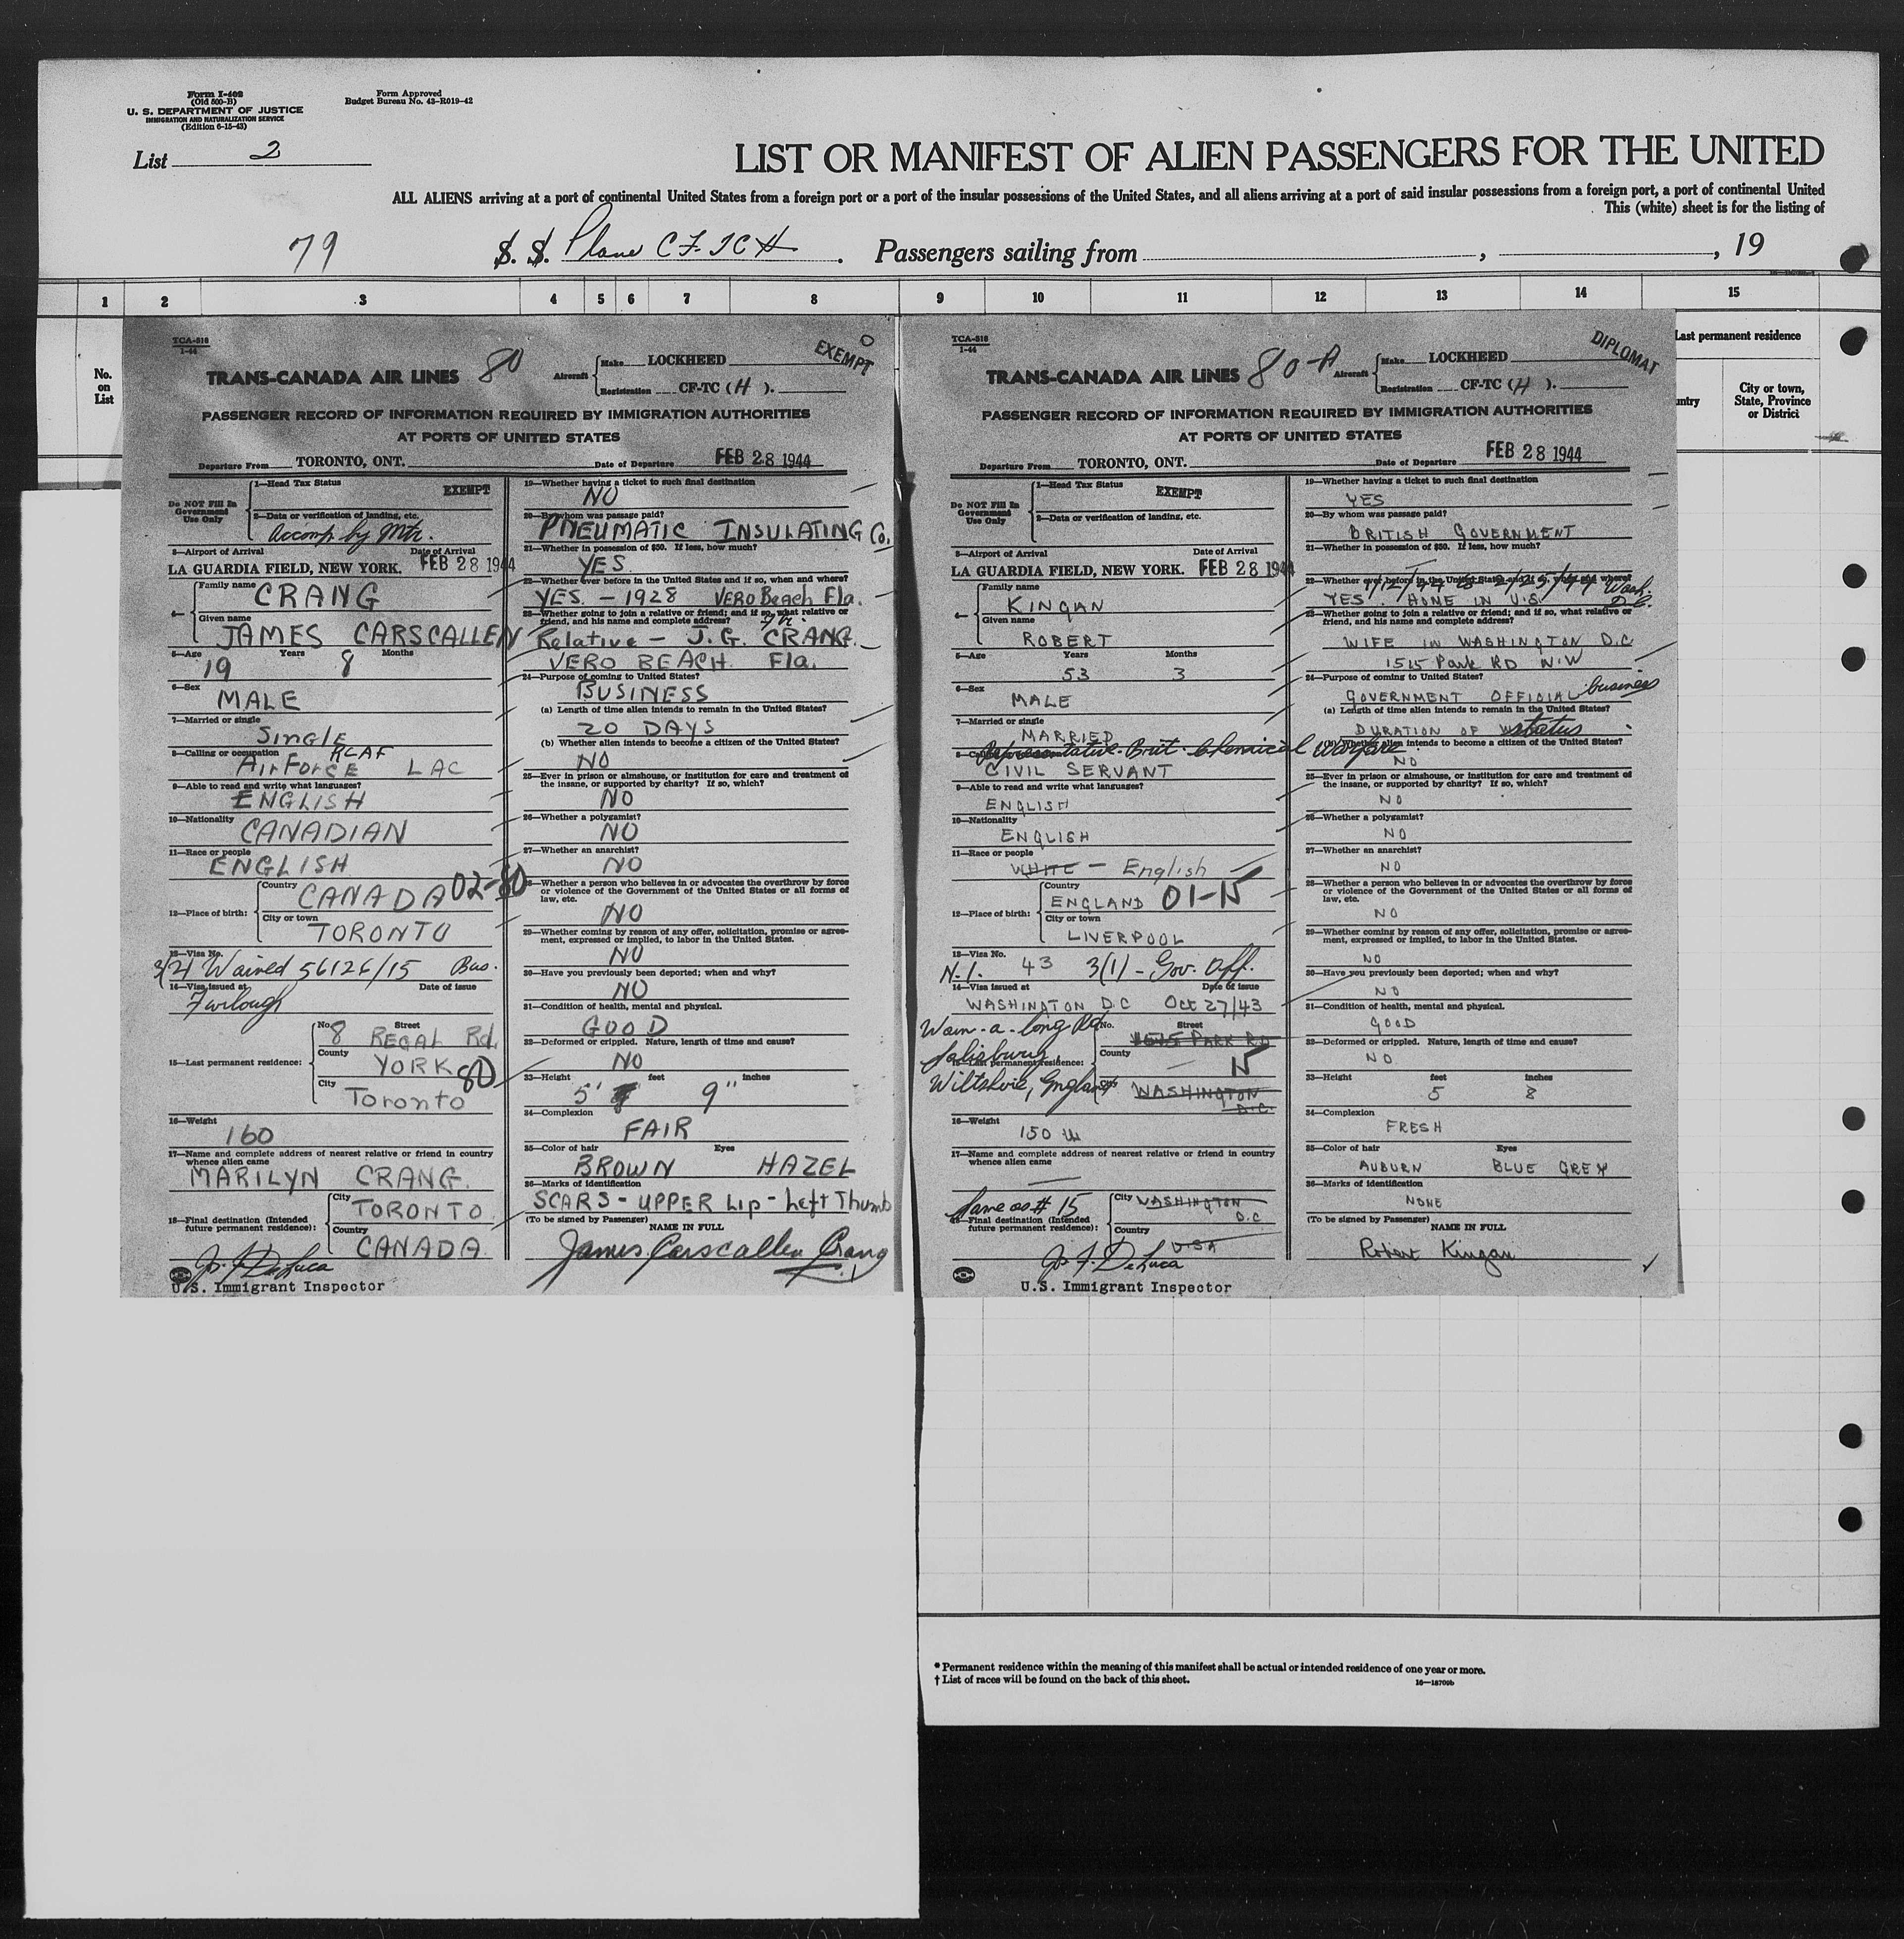 Form I-402
(Old 500-B)
U. S. DEPARTMENT OF JUSTICE
IMMIGRATION AND NATURALIZATION SERVICE
(Edition 6-15-43)
Form Approved
Budget Bureau No. 43-R019-42
List 2
LIST OR MANIFEST OF ALIEN PASSENGERS FOR THE UNITED
ALL ALIENS arriving at a port of continental United States from a foreign port or a port of the insular possessions of the United States, and all aliens arriving at a port of said insular possessions from a foreign port, a port of continental United
This (white) sheet is for the listing of
79 S. S. Plane CF-TCH. Passengers sailing from , , 19
1 2 3 4 5 6 7 8 9 10 11 12 13 14 15
No.
on
List
Last permanent residence
ntry
City or town,
State, Province
or District
TCA-516
1-44
TRANS-CANADA AIR LINES 80
Aircraft
Make LOCKHEED
Registration CF-TC (H).
EXEMPT
PASSENGER RECORD OF INFORMATION REQUIRED BY IMMIGRATION AUTHORITIES
AT PORTS OF UNITED STATES
Departure From TORONTO, ONT. Date of Departure FEB 28 1944
Do NOT Fill In
Government
Use Only
1—Head Tax Status EXEMPT
2—Data or verification of landing, etc.
Accomp by Mtr.
3—Airport of Arrival Date of Arrival
LA GUARDIA FIELD, NEW YORK. FEB 28 1944
4— Family name CRANG
Given name
JAMES CARSCALLEN
5—Age 19 Years 8 Months
6—Sex
MALE
7—Married or single
Single
8—Calling or occupation RCAF
AirForce LAC
9—Able to read and write what languages?
ENGLISH
10—Nationality
CANADIAN
11—Race or people
ENGLISH
12—Place of birth: Country CANADA 02-80
City or town
TORONTO
13—Visa No.
3(2) Waived 56126/15 Bus.
14—Visa issued at Date of issue
Furlough
15—Last permanent residence: No. 8 Street REGAL Rd.
County YORK 80
City Toronto
16—Weight
160
17—Name and complete address of nearest relative or friend in country
whence alien came
MARILYN CRANG.
18—Final destination (Intended
future permanent residence):
City TORONTO
Country
CANADA
Jos. F. DeLuca
U.S. Immigrant Inspector
19—Whether having a ticket to such final destination
NO
20—By whom was passage paid?
PNEUMATIC INSULATING Co.
21—Whether in possession of $50. If less, how much?
YES
22—Whether ever before in the United States and if so, when and where?
YES. — 1928 VERO Beach Fla.
23—Whether going to join a relative or friend; and if so, what relative or
friend, and his name and complete address?
Relative — J. G. CRANG.
VERO BEACH Fla.
24—Purpose of coming to United States?
BUSINESS
(a) Length of time alien intends to remain in the United States?
20 DAYS
(b) Whether alien intends to become a citizen of the United States?
NO
25—Ever in prison or almshouse, or institution for care and treatment of
the insane, or supported by charity? If so, which?
NO
26—Whether a polygamist?
NO
27—Whether an anarchist?
NO
28—Whether a person who believes in or advocates the overthrow by force
or violence of the Government of the United States or all forms of
law, etc.
NO
29—Whether coming by reason of any offer, solicitation, promise or agree-
ment, expressed or implied, to labor in the United States.
NO
30—Have you previously been deported; when and why?
NO
31—Condition of health, mental and physical.
GOOD
32—Deformed or crippled. Nature, length of time and cause?
NO
33—Height feet inches
5' 9"
34—Complexion
FAIR
35—Color of hair Eyes
BROWN HAZEL
36—Marks of identification
SCARS - UPPER Lip - Left Thumb
(To be signed by Passenger) NAME IN FULL
James Carscallen Crang
TCA-516
1-44
TRANS-CANADA AIR LINES 80-A
Aircraft
Make LOCKHEED
Registration CF-TC (H).
DIPLOMAT
PASSENGER RECORD OF INFORMATION REQUIRED BY IMMIGRATION AUTHORITIES
AT PORTS OF UNITED STATES
Departure From TORONTO, ONT. Date of Departure FEB 28 1944
Do NOT Fill In
Government
Use Only
1—Head Tax Status EXEMPT
2—Data or verification of landing, etc.
3—Airport of Arrival Date of Arrival
LA GUARDIA FIELD, NEW YORK. FEB 28 1944
4— Family name
KINGAN
Given name
ROBERT
5—Age Years Months
53 3
6—Sex
MALE
7—Married or single
MARRIED
Representative-Brit. Chemical Warfare
CIVIL SERVANT
9—Able to read and write what languages?
ENGLISH
10—Nationality
ENGLISH
11—Race or people
WHITE — English
12—Place of birth: Country
ENGLAND 01-15
City or town
LIVERPOOL
13—Visa No.
N.I. 43 3(1) - Gov. Off.
14—Visa issued at Date of issue
WASHINGTON D.C Oct 27/43
Wain-a-long Rd. No. Street 1515 PARK RD
Salisbury,
15—Last permanent residence: County 15
Wiltshire, England City WASHINGTON
D.C.
16—Weight
150 lb
17—Name and complete address of nearest relative or friend in country
whence alien came
Same as # 15
18—Final destination (Intended
future permanent residence):
City WASHINGTON
D.C
Country
USA
Jos. F. DeLuca
U.S. Immigrant Inspector
19—Whether having a ticket to such final destination
YES
20—By whom was passage paid?
BRITISH GOVERNMENT
21—Whether in possession of $50. If less, how much?
22—Whether ever before in the United States and if so, when and where?
YES. HOME IN U.S. Wash. D.C.
23—Whether going to join a relative or friend; and if so, what relative or
friend, and his name and complete address?
WIFE IN WASHINGTON D.C
1515 Park RD N.W
24—Purpose of coming to United States?
GOVERNMENT OFFICIAL business
(a) Length of time alien intends to remain in the United States?
DURATION OF status
(b) Whether alien intends to become a citizen of the United States?
NO
25—Ever in prison or almshouse, or institution for care and treatment of
the insane, or supported by charity? If so, which?
NO
26—Whether a polygamist?
NO
27—Whether an anarchist?
NO
28—Whether a person who believes in or advocates the overthrow by force
or violence of the Government of the United States or all forms of
law, etc.
NO
29—Whether coming by reason of any offer, solicitation, promise or agree-
ment, expressed or implied, to labor in the United States.
NO
30—Have you previously been deported; when and why?
NO
31—Condition of health, mental and physical.
GOOD
32—Deformed or crippled. Nature, length of time and cause?
NO
33—Height feet inches
5 8
34—Complexion
FRESH
35—Color of hair Eyes
AUBURN BLUE GREY
36—Marks of identification
NONE
(To be signed by Passenger) NAME IN FULL
Robert Kingan
* Permanent residence within the meaning of this manifest shall be actual or intended residence of one year or more.
† List of races will be found on the back of this sheet.
16—18700b